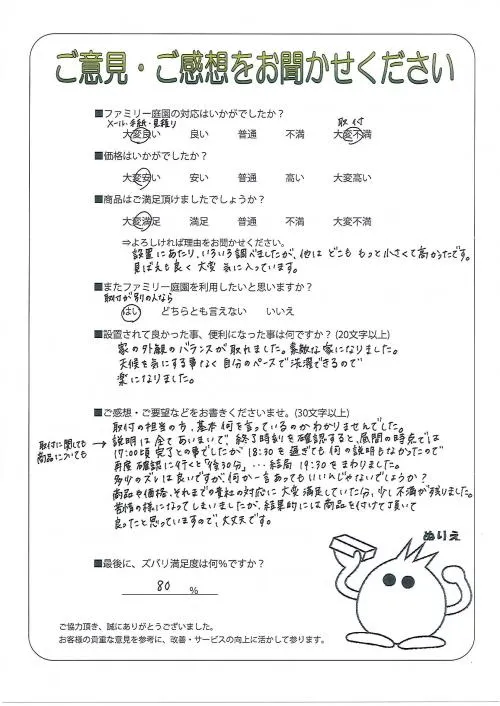 ご意見・ご感想をお聞かせください
■ファミリー庭園の対応はいかがでしたか？
メール・手紙・見積り 取付
大変良い 良い 普通 不満 大変不満
■価格はいかがでしたか？
大変安い 安い 普通 高い 大変高い
■商品はご満足頂けましたでしょうか？
大変満足 満足 普通 不満 大変不満
⇒よろしければ理由をお聞かせください。
設置にあたり、いろいろ調べましたが、他は どこも もっと小さくて高かったです。
見ばえも良く 大変 気に入っています。
■またファミリー庭園を利用したいと思いますか？
取付が別の人なら
はい どちらとも言えない いいえ
■設置されて良かった事、便利になった事は何ですか？(20文字以上)
家の外観のバランスが取れました。素敵な家になりました。
天候を気にする事なく自分のペースで洗濯できるので
楽になりました。
■ご感想・ご要望などをお書きくださいませ。(30文字以上)
取付の担当の方、基本何を言っているのかわかりませんでした。
取付に関しても
商品についても
説明は全てあいまいで、終了時刻を確認すると、昼間の時点では
17:00頃完了との事でしたが 18:30を過ぎても何の説明もなかったので
再度確認に行くと「後30分」…結局 19:30をまわりました。
多少のズレは良いですが、何か一言あってもいいんじゃないでしょうか？
商品や価格、それまでの貴社の対応に大変満足していた分、少し不満が残りました。
苦情の様になってしまいましたが、結果的には商品を付けて頂いて
良ったと思っていますので、大丈夫です。
■最後に、ズバリ満足度は何%ですか？
80 %
ぬりえ
ご協力頂き、誠にありがとうございました。
お客様の貴重な意見を参考に、改善・サービスの向上に活かして参ります。